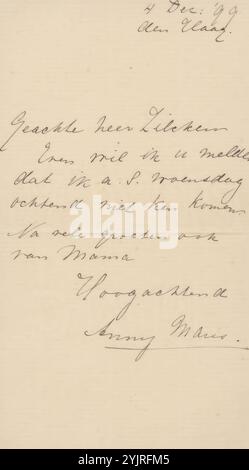 4 Dec: '99
den Haag.
Geachte heer Zilcken
Even wil ik u melden
dat ik a. S. woensdag
ochtend niet kan komen
Na vele groeten ook
van Mama
Hoogachtend
Anny Maris.
alamy
Image ID: 2YJRFM5
www.alamy.com